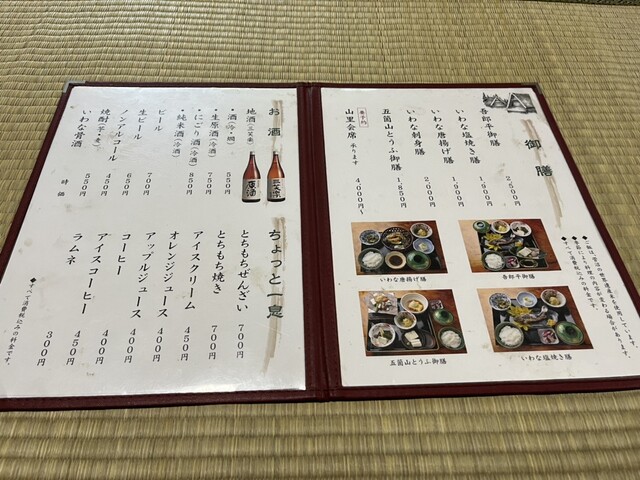 御膳
吾郎平御膳 2,500円
いわな塩焼き膳 1,900円
いわな唐揚げ膳 1,900円
いわな刺身膳 2,000円
五箇山とうふ御膳 1,850円
要予約
山里会席 承ります 4,000円〜
季節により、料理の内容が変わる場合があります。
◆すべて消費税込みの料金です。
いわな唐揚げ膳
吾郎平御膳
五箇山とうふ御膳
いわな塩焼き膳
お酒
地酒（三笑楽）
・酒（冷・燗） 550円
・生原酒（冷酒） 750円
・にごり酒（冷酒）
・純米酒（冷酒） 850円
ビール 700円
生ビール 650円
ノンアルコール 450円
焼酎（芋・麦） 550円
いわな骨酒 時価
ちょっと一息
とちもちぜんざい 700円
とちもち焼き 700円
アイスクリーム 450円
オレンジジュース 400円
アップルジュース 400円
コーヒー 400円
アイスコーヒー 450円
ラムネ 300円
◆すべて消費税込みの料金です。